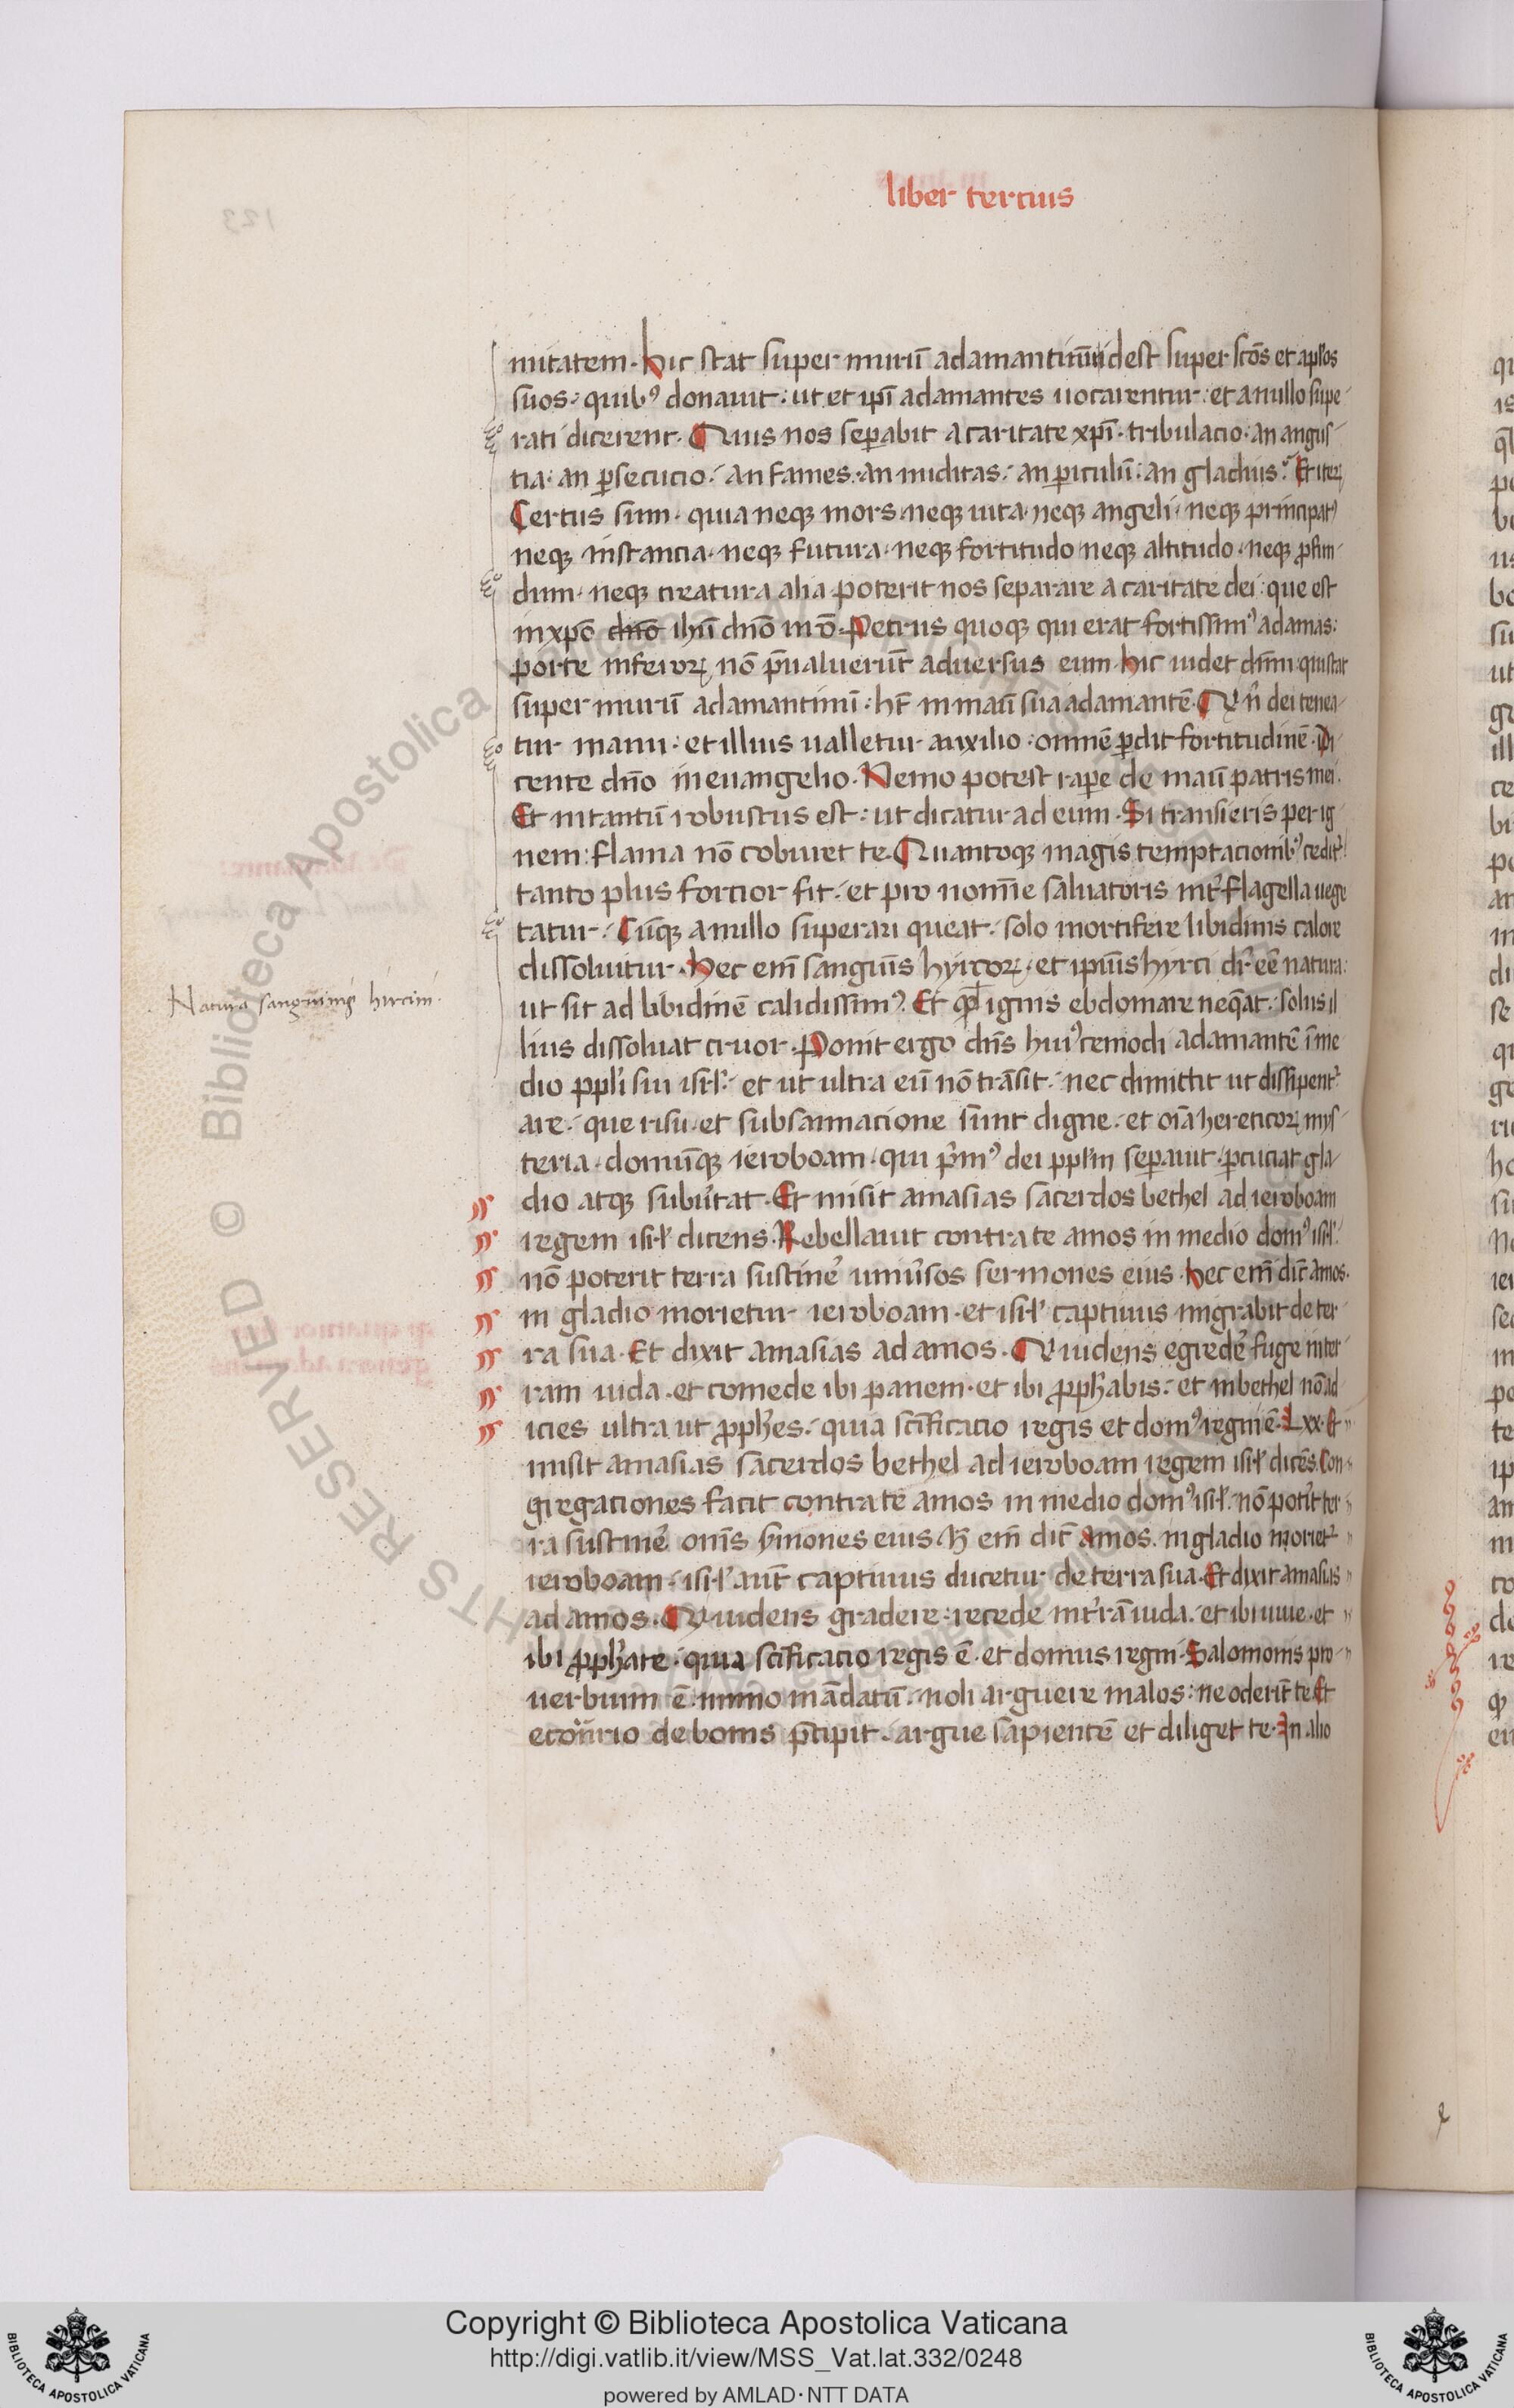 liber tercius
nitatem. hic stat super murū adamantinū idest super scōs et apłos
suos: quibꝰ donauit: ut et ipī adamantes uocarentur: et a nullo supe-
rati dicerent. Quis nos seꝑabit a caritate xpī. tribulacio. an angus-
tia. an ꝑsecucio. an fames. an nuditas. an ꝑiculū. an gladius. Et iteꝝ
Certus sum. quia neqꝫ mors neqꝫ uita. neqꝫ angeli. neqꝫ principatꝰ
neqꝫ instancia. neqꝫ futura. neqꝫ fortitudo neqꝫ altitudo. neqꝫ ꝓfun-
dum. neqꝫ creatura alia poterit nos separare a caritate dei: que est
in xp̄o dn̄o ihū dn̄o nr̄o. Petrus quoqꝫ qui erat fortissimꝰ adamas:
porte inferioꝝ nō p̄ualuerūt aduersus eum. hic uidet dn̄m qui stat
super murū adamantinū: ht̄ in manū sua adamantē. Qn̄ dei tenea-
tur manu: et illius ualletur auxilio. omnē ꝑdit fortitudinē. Di-
cente dn̄o in euangelio. Nemo potest raꝑe de manū patris mei.
Et in tantū robustus est: ut dicatur ad eum. Si transieris per ig-
nem: flama nō cobiuret te. Quantoqꝫ magis temptacionibꝰ cedit̄
tanto plus forcior fit. et pro nomīe saluatoris int̄ flagella uege
tatur. Cūqꝫ a nullo superari queat. solo mortifere libidinis calore
dissoluitur. Hec em̄ sanguīs hyrcoꝝ. et ipiūs hyrci dr̄ ēē natura:
Natura sanguinis hircini.
ut sit ad libidinē calidissimꝰ. Et qđ ignis edomare neq̄at. solus il
lius dissoluat cruor. Ponit ergo dn̄s huiꝰcemodi adamantē ī me
dio ppl̄i sui isrł. et ut ultra eū nō trāsit. nec dimittit ut dissipent̄
are. que risu. et subsannacione sunt digne. et oīa hereticoꝝ mys-
teria. domūqꝫ ieroboam. qui p̄mꝰ dei ppłm seꝑauit. ꝑcuciat gla-
dio atqꝫ subūtat. Et misit amasias sacerdos bethel ad ieroboam
regem isrł dicens. Rebellauit contra te amos in medio domꝰ isrł.
nō poterit terra sustinē uniūsos sermones eius. hec em̄ dic̄ amos.
in gladio morietur ieroboam. et isrł captiuus migrabit de ter-
ra sua. Et dixit amasias ad amos. Qui uidens egredē fuge in ter-
ram iuda. et comede ibi panem. et ibi ꝓphabis. et in bethel nō ad
icies ultra ut ꝓphes. quia scīficacio regis et domꝰ regni ē. Lxx. Et
misit amasias sacerdos bethel ad ieroboam regem isrł dicēs. Con-
gregaciones facit contra te amos in medio domꝰ isrł. nō potīt ter-
ra sustinē omīs sermones eius. H em̄ dic̄ amos. in gladio moriet̄
ieroboam. isrł aut̄ captiuus ducetur de terra sua. Et dixit amasias
ad amos. Qui uidens gradere. recede in t̄rā iuda. et ibi uiue. et
ibi ꝓphate. quia scīficacio regis ē. et domus regni. Salomonis pro-
uerbium ē. immo mādatū. noli arguere malos: ne oderīt te. Et
econ̄rio de bonis p̄cipit. argue sapientē et diliget te. In alio
Copyright © Biblioteca Apostolica Vaticana
http://digi.vatlib.it/view/MSS_Vat.lat.332/0248
powered by AMLAD·NTT DATA